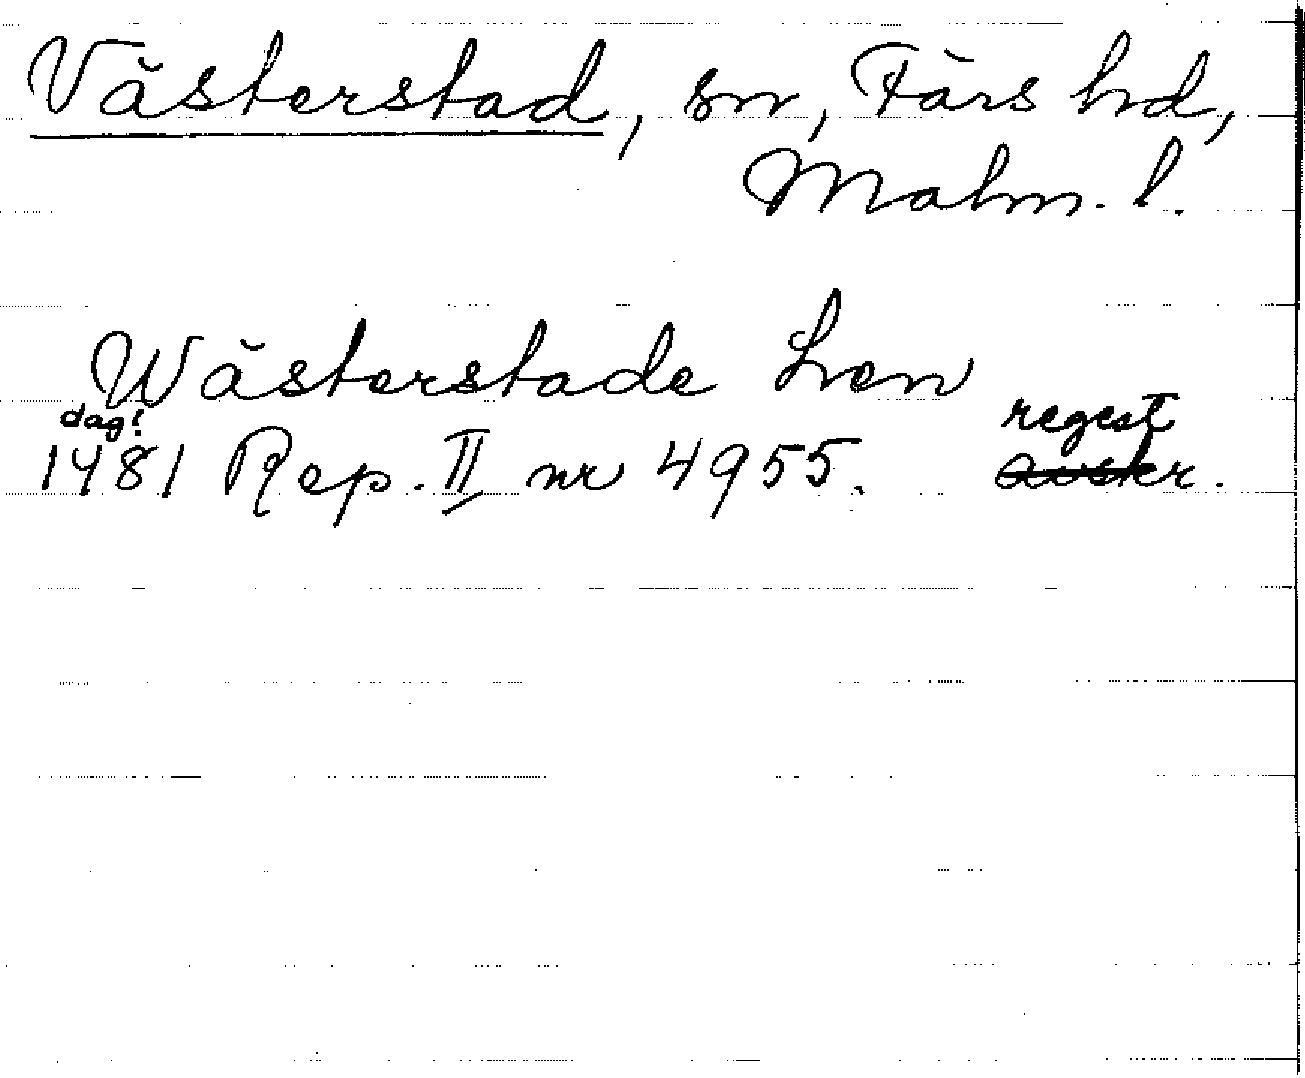 Västerstad, sn, Färs hd,
Malm. l.
Wästerstade Len
dag!
1481 Rep. II nr 4955. regest
avskr.